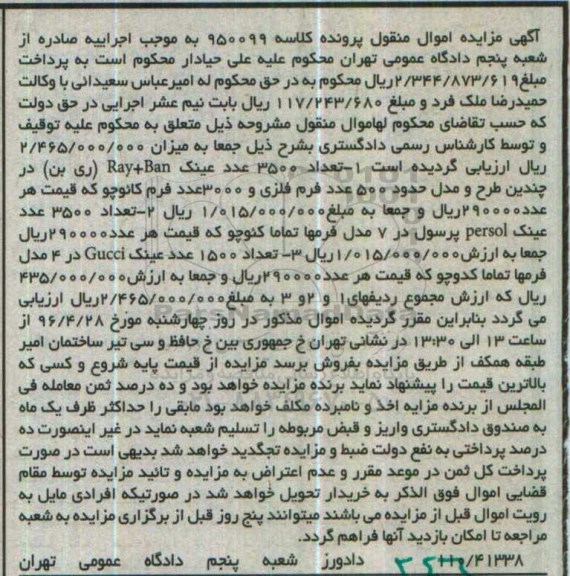 آگهی مزایده اموال منقول پرونده کلاسه ۹۵۰۰۹۹ به موجب اجراییه صادره از
شعبه پنجم دادگاه عمومی تهران محکوم علیه علی حیادار محکوم است به پرداخت
مبلغ۲/۳۴۴/۸۷۳/۶۱۹ریال محکوم به در حق محکوم له امیرعباس سعیدانی با وکالت
حمیدرضا ملک فرد و مبلغ ۱۱۷/۲۴۳/۶۸۰ ریال بابت نیم عشر اجرایی در حق دولت
که حسب تقاضای محکوم لهاموال منقول مشروحه ذیل متعلق به محکوم علیه توقیف
و توسط کارشناس رسمی دادگستری بشرح ذیل جمعا به میزان ۲/۴۶۵/۰۰۰/۰۰۰
ریال ارزیابی گردیده است. ۱-تعداد ۳۵۰۰ عدد عینک Ray+Ban (ری بن) در
چندین طرح و مدل حدود ۵۰۰ عدد فرم فلزی و ۳۰۰۰عدد فرم کائوچو که قیمت هر
عدد۲۹۰۰۰۰ریال و جمعا به مبلغ۱/۰۱۵/۰۰۰/۰۰۰ ریال ۲-تعداد ۳۵۰۰ عدد
عینک persol پرسول در ۷ مدل فرمها تماما کئوچو که قیمت هر عدد۲۹۰۰۰۰ریال
جمعا به ارزش۱/۰۱۵/۰۰۰/۰۰۰ریال ۳- تعداد ۱۵۰۰ عدد عینک Gucci در ۴ مدل
فرمها تماما کدوچو که قیمت هر عدد۲۹۰۰۰۰ریال و جمعا به ارزش۴۳۵/۰۰۰/۰۰۰
ریال که ارزش مجموع ردیفهای۱ و ۲و ۳ به مبلغ۲/۴۶۵/۰۰۰/۰۰۰ریال ارزیابی
می گردد بنابراین مقرر گردیده اموال مذکور در روز چهارشنبه مورخ ۹۶/۴/۲۸ از
ساعت ۱۳ الی ۱۳:۳۰ در نشانی تهران خ جمهوری بین خ حافظ و سی تیر ساختمان امیر
طبقه همکف از طریق مزایده بفروش برسد مزایده از قیمت پایه شروع و کسی که
بالاترین قیمت را پیشنهاد نماید برنده مزایده خواهد بود و ده درصد ثمن معامله فی
المجلس از برنده مزایه اخذ و نامبرده مکلف خواهد بود مابقی را حداکثر ظرف یک ماه
به صندوق دادگستری واریز و قبض مربوطه را تسلیم شعبه نماید در غیر اینصورت ده
درصد پرداختی به نفع دولت ضبط و مزایده تجگدید خواهد شد بدیهی است در صورت
پرداخت کل ثمن در موعد مقرر و عدم اعتراض به مزایده و تائید مزایده توسط مقام
قضایی اموال فوق الذکر به خریدار تحویل خواهد شد در صورتیکه افرادی مایل به
رویت اموال قبل از مزایده می باشند میتوانند پنج روز قبل از برگزاری مزایده به شعبه
مراجعه تا امکان بازدید آنها فراهم گردد.
/۴۱۳۳۸ دادورز شعبه پنجم دادگاه عمومی تهران